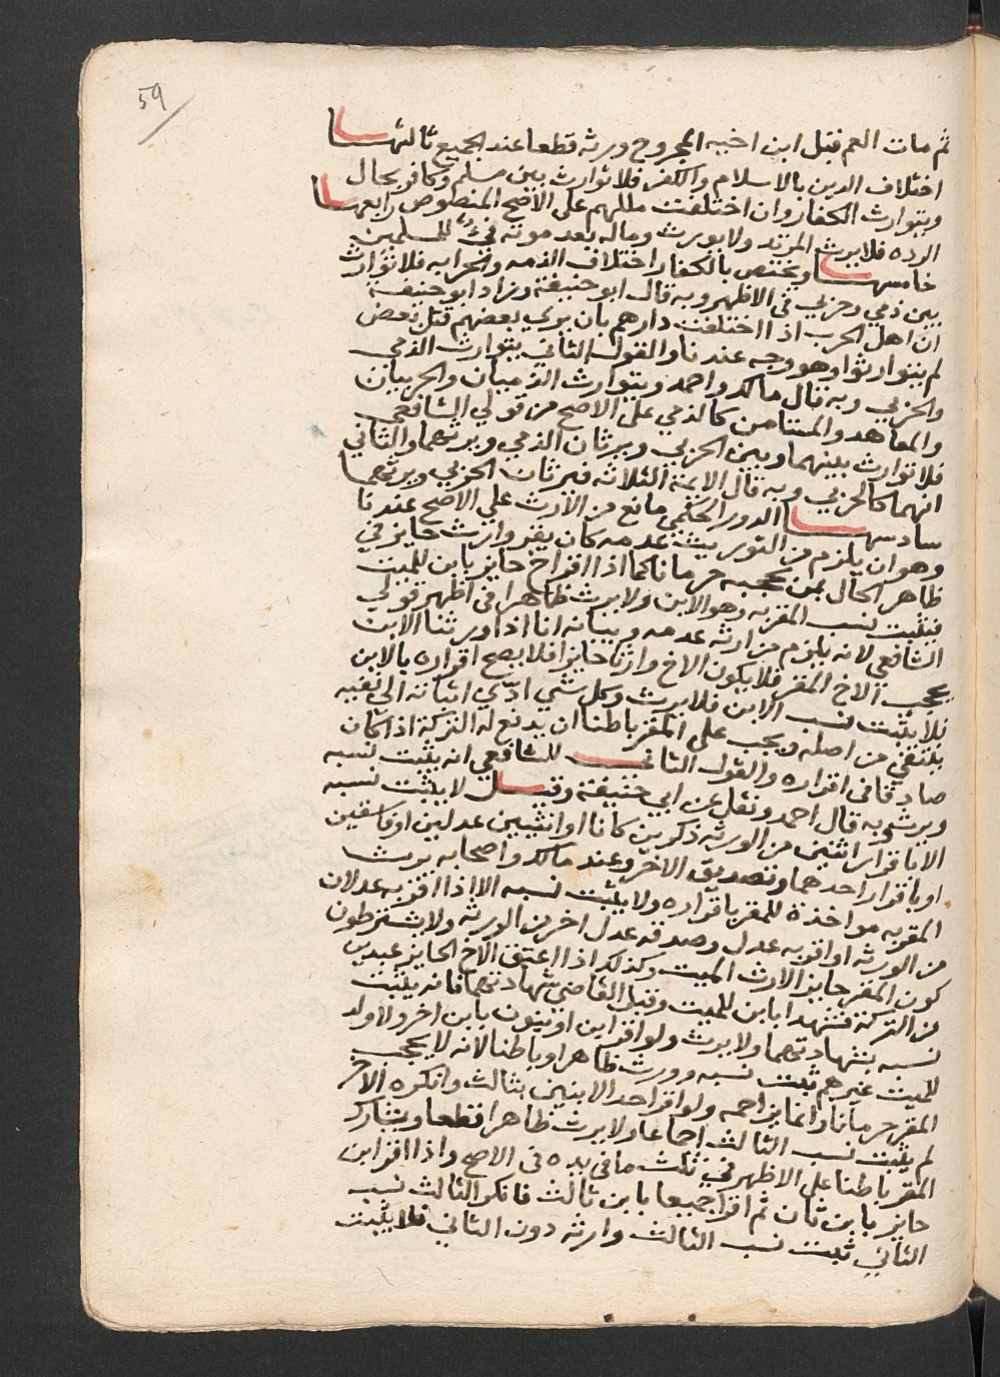 59
ثم مات العم قبل ابن اخيه المجروح ورثه قطعا عند الجميع ثالثها
اختلاف الدين بالاسلام والكفر فلا توارث بين مسلم وكافر بحال
ويتوارث الكفار وان اختلفت مللهم على الاصح المنصوص رابعها
الرده فلا يرث المرتد ولا يورث وماله بعد موته فيء للمسلمين
خامسها ويختص بالكفار اختلاف الذمه والحرابه فلا توارث
بين ذمي وحربي في الاظهر وبه قال ابو حنيفة وزاد ابو حنيفة
ان اهل الحرب اذا اختلفت دارهم بان يري بعضهم قتل بعض
لم يتوارثوا وهو وجه عندنا والقول الثاني يتوارث الذمي
والحربي وبه قال مالك واحمد ويتوارث الذميان والحربيان
والمعاهد والمستامن كالذمي على الاصح من قولي الشافعي
فلا توارث بينهما وبين الحربي ويرثان الذمي ويرثهما والثاني
انهما كالحربي وبه قال الايمة الثلاثه فيرثان الحربي ويرثهما
سادسها الدور الحكمي مانع من الارث علي الاصح عندنا
وهو ان يلزم من التوريث عدمه كان يقر وارث حايز في
ظاهر الحال بمن يحجبه حرمانا كما اذا اقر اخ حايز بابن للميت
فيثبت نسب المقر به وهو الابن ولا يرث ظاهرا في اظهر قولي
الشافعي لانه يلزم من ارثه عدمه وبيانه انا اذا ورثنا الابن
يحجب الاخ المقر فلا يكون الاخ وارثا حايزا فلا يصح اقراره بالابن
فلا يثبت نسب الابن فلا يرث وكل شي ادي اثباته الى نفيه
ينتفي من اصله ويجب على المقر باطنا ان يدفع له التركة اذا كان
صادقا في اقراره والقول الثاني للشافعي انه يثبت نسبه
ويرث وبه قال احمد ونقل عن ابي حنيفة وقيل لا يثبت نسبه
الا باقرار اثنين من الورثه ذكرين كانا او انثيين عدلين او فاسقين
او باقرار احدهما وتصديق الاخر وعند مالك واصحابه يرث
المقر به مواخذة للمقر باقراره ولا يثبت نسبه الا اذا اقر به عدلان
من الورثه او اقر به عدل وصدقه عدل اخر من الورثه ولا يشترطون
كون المقر حايز الارث الميت وكذلك اذا اعتق الاخ الحايز عبدين
من التركة فشهدا بابن للميت وقبل القاضي شهادتهما فانه يثبت
نسبه بشهادتهما ولا يرث ولو اقر ابن او بنون بابن اخر ولا ولد
للميت غيرهم ثبت نسبه وورث ظاهرا وباطنا لانه لا يحجب
المقر حرمانا وانما يزاحمه ولو اقر احد الابنين بثالث وانكره الاخر
لم يثبت نسب الثالث اجماعا ولا يرث ظاهرا قطعا ويشارك
المقر باطنا على الاظهر في ثلث ما في يده في الاصح واذا اقر ابن
حايز بابن ثان ثم اقرا جميعا بابن ثالث فانكر الثالث نسب
الثاني ثبت نسب الثالث وارثه دون الثاني فلا يثبت